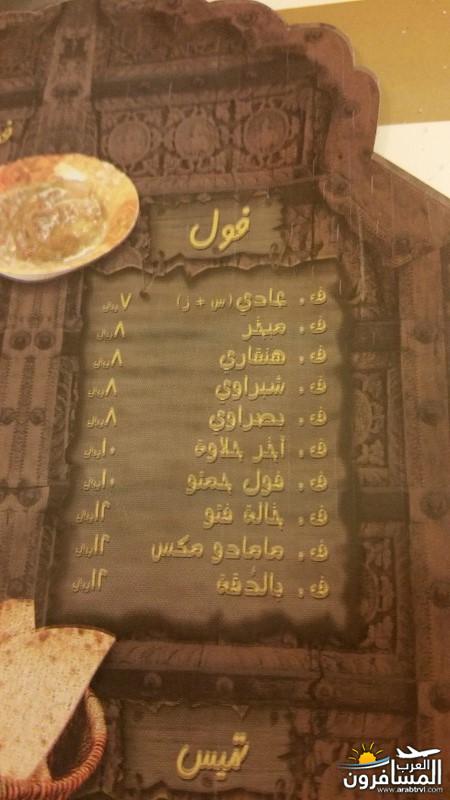 فول
ف. عادي (س + ز) ٧ ريال
ف. مبخر ٨ ريال
ف. هنقاري ٨ ريال
ف. شبراوي ٨ ريال
ف. بصراوي ٨ ريال
ف. آخر حلاوة ١٠ ريال
ف. فول حمتو ١٠ ريال
ف. خالة فتو ١٢ ريال
ف. مامادو مكس ١٢ ريال
ف. بالدُقة ١٢ ريال
تميس
العرب
المسافرون
www.arabtrvl.com